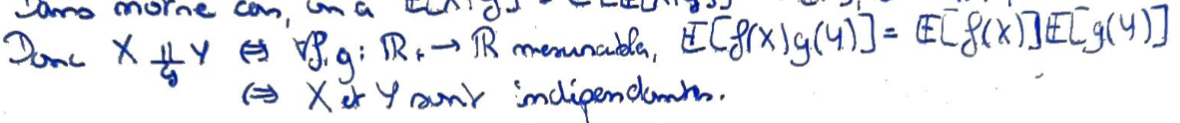 Dans notre cas, on a
Donc X ⫫_𝒢 Y ⇔ ∀f, g : ℝ₊ → ℝ mesurables, 𝔼[f(X)g(Y)] = 𝔼[f(X)]𝔼[g(Y)]
⇔ X et Y sont indépendantes.